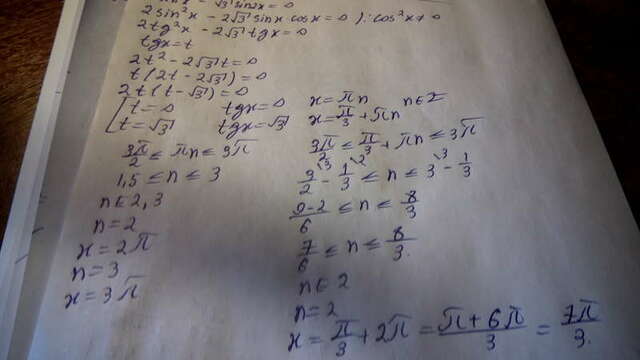 - √3 sin2x = 0
2sin²x - 2√3 sinx cosx = 0 /: cos²x ≠ 0
2tg²x - 2√3 tgx = 0
tgx = t
2t² - 2√3 t = 0
t(2t - 2√3) = 0
2t(t - √3) = 0
[t = 0 tgx = 0 x = πn n∈Z
[t = √3 tgx = √3 x = π/3 + πn
3π/2 ≤ πn ≤ 3π
1,5 ≤ n ≤ 3
n∈2,3
n = 2
x = 2π
n = 3
x = 3π
3π/2 ≤ π/3 + πn ≤ 3π
3/2 - 1/3 ≤ n ≤ 3 - 1/3
9-2/6 ≤ n ≤ 8/3
7/6 ≤ n ≤ 8/3.
n∈2
n = 2
x = π/3 + 2π = π+6π/3 = 7π/3.